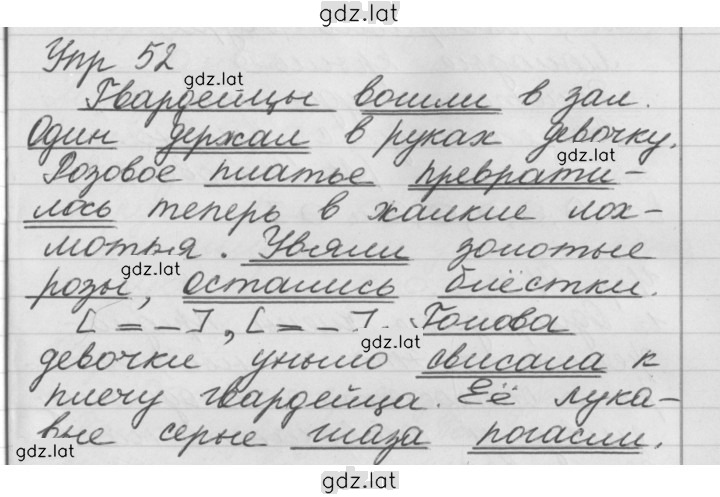 gdz.lat
Упр 52
gdz.lat
Гвардейцы вошли в зал.
Один держал в руках девочку.
gdz.lat
Розовое платье преврати-
лось теперь в жалкие лох-
мотья. Увяли золотые
gdz.lat
розы, остались блёстки.
[ = – ], [ = – ]. Голова
gdz.lat
девочки уныло свисала к
плечу гвардейца. Её лука-
вые серые глаза погасли.
gdz.lat
gdz.lat
gdz.lat